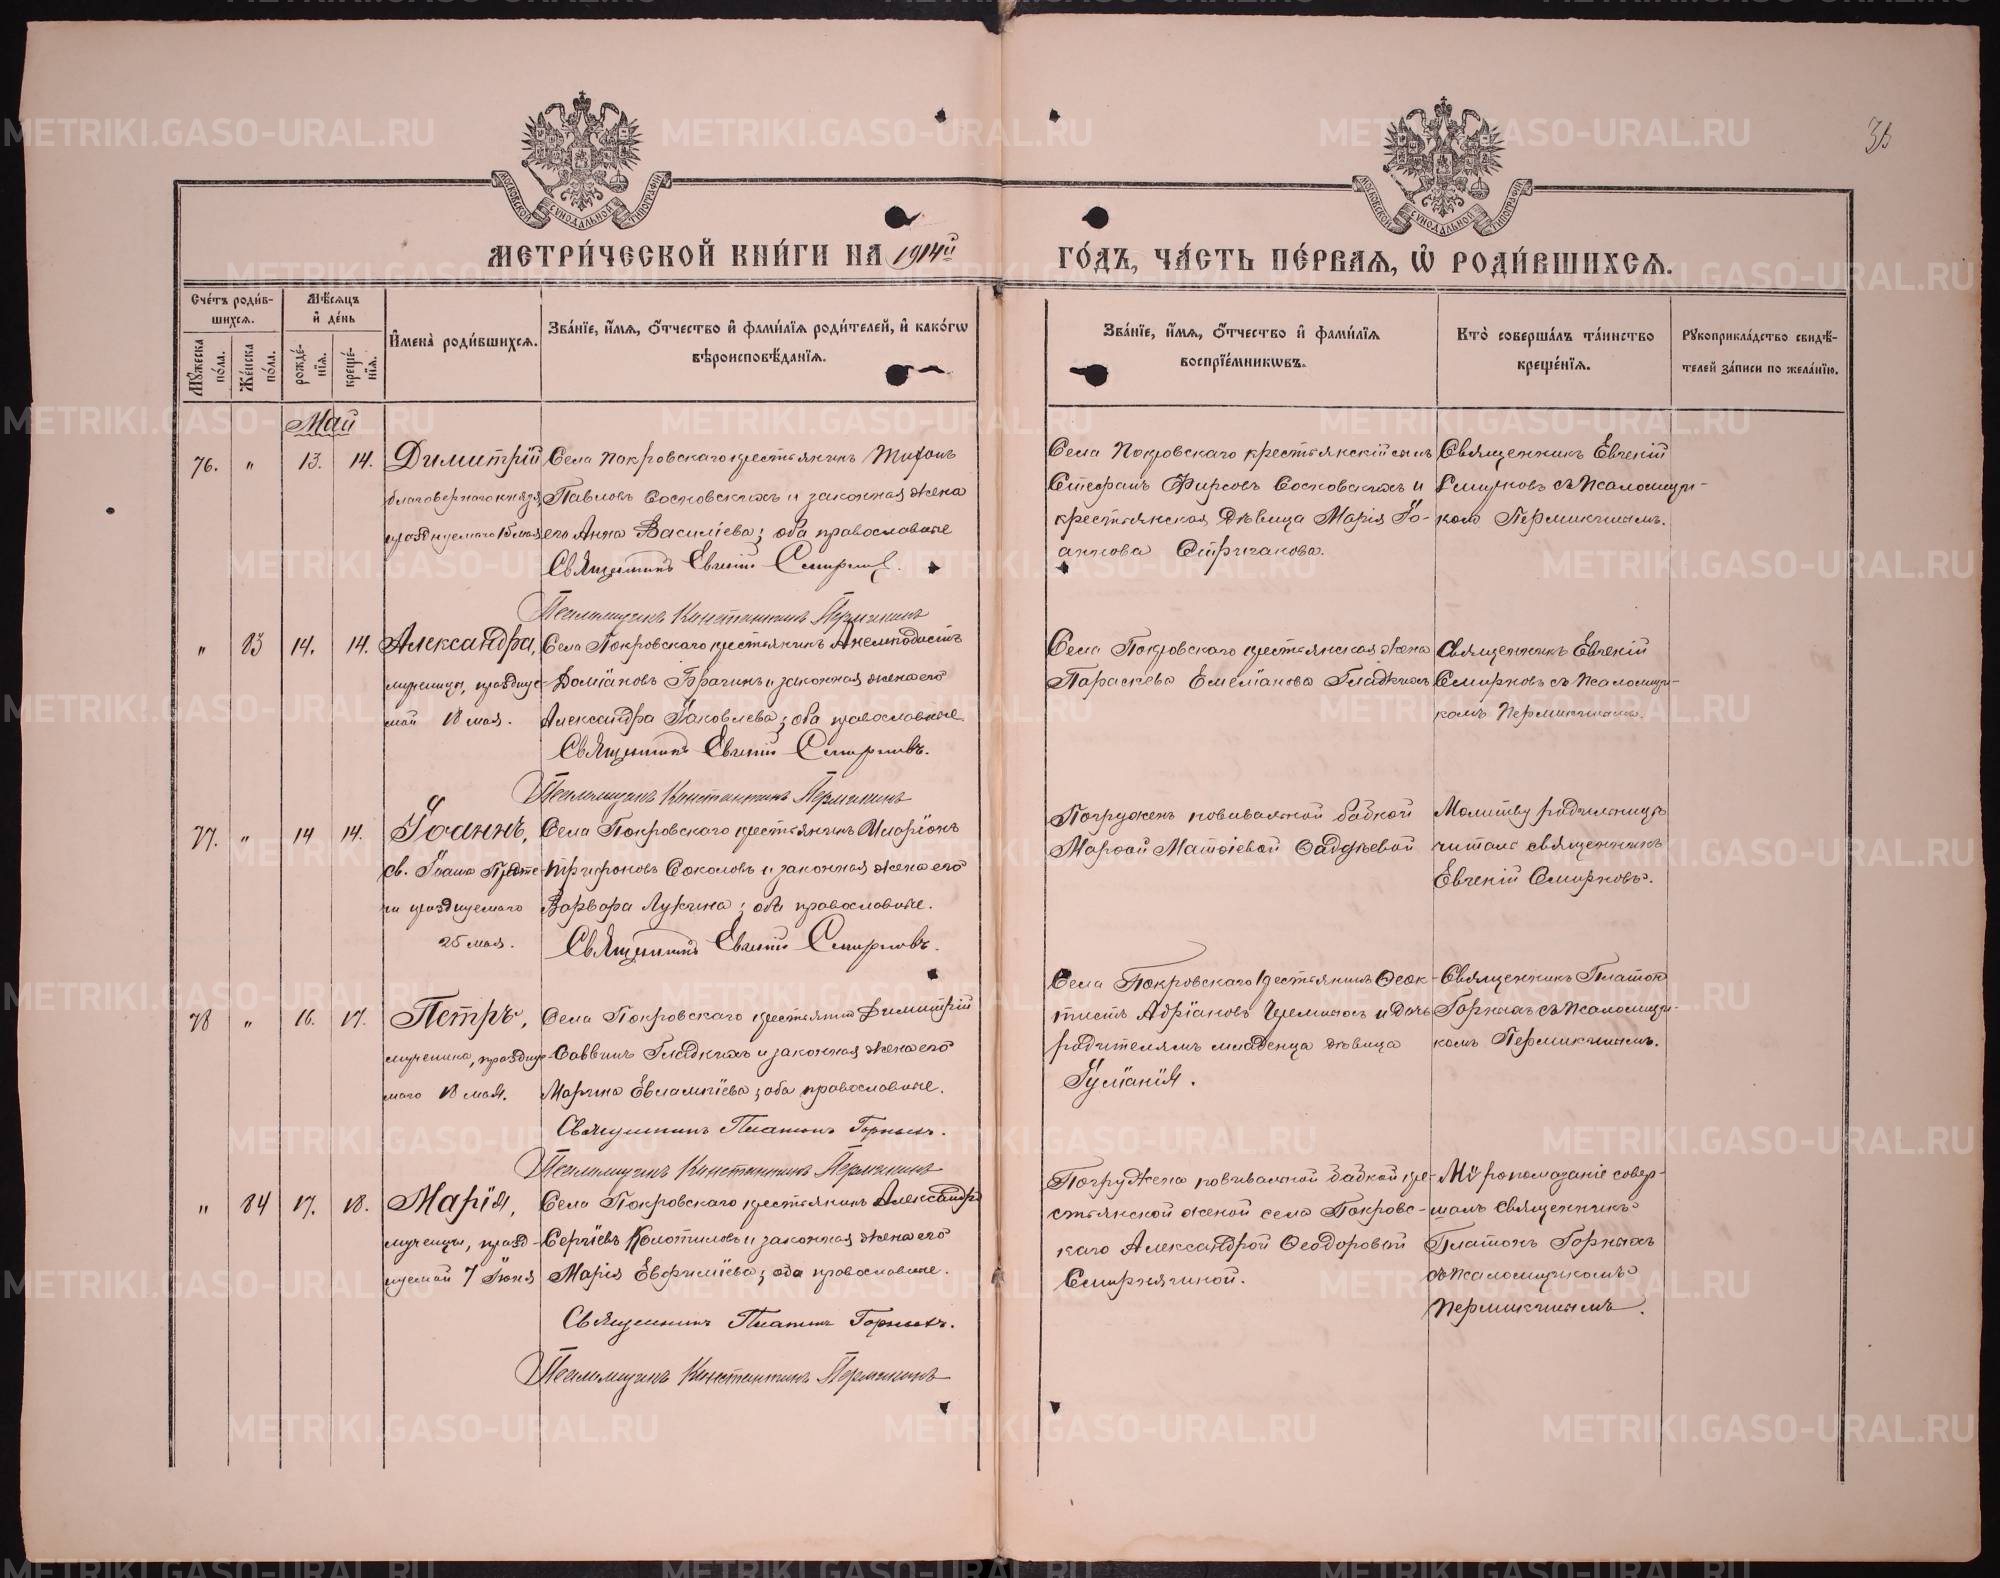 МЕТРИ́ЧЕСКОЙ КНИ́ГИ НА 1914й
ГО́ДЪ, ЧА́СТЬ ПЕ́РВАЯ, Ѡ҆ РОДИ́ВШИХСЯ.
МОСКОВСКОЙ СѴНОДАЛЬНОЙ ТИПОГРАФІИ
МОСКОВСКОЙ СѴНОДАЛЬНОЙ ТИПОГРАФІИ
Сче́тъ роди́в-
шихся.
Мѣ́сяцъ
и҆ де́нь
Мꙋжеска по́ла.
Же́нска по́ла.
рожде́-
нїя.
креще́-
нїя.
И҆мена̀ роди́вшихся.
Зва́нїе, и҆́мя, ѻ҆́тчество и҆ фами́лїя роди́телей, и҆ како́гѡ
вѣроисповѣ́данїя.
Зва́нїе, и҆́мя, ѻ҆́тчество и҆ фами́лїя
воспрїе́мникѡвъ.
Кто̀ соверша́лъ та́инство
креще́нїя.
Рꙋкоприкла́дство свидѣ́-
телей за́писи по жела́нїю.
Май
76. " 13. 14. Димитрій
благовернаго князя,
празднуемаго 15 мая
Села Покровскаго крестьянинъ Тихонъ
Павловъ Сосновскихъ и законная жена
его Анна Василіева; оба православные
Священникъ Евгеній Смирновъ.
Псаломщикъ Константинъ Пермикинъ
Села Покровскаго крестьянскій сынъ
Стефанъ Фирсовъ Сосновскихъ и
крестьянская дѣвица Марія Іо-
аннова Стриганова.
Священникъ Евгеній
Смирновъ съ псаломщи-
комъ Пермикинымъ.
" 83 14. 14. Александра,
мученицы, праздну-
мой 18 мая.
Села Покровскаго крестьянинъ Анемподистъ
Доміановъ Брагинъ и законная жена его
Александра Іаковлева; оба православные.
Священникъ Евгеній Смирновъ.
Псаломщикъ Константинъ Пермикинъ
Села Покровскаго крестьянская жена
Параскева Емеліанова Гладкихъ
Священникъ Евгеній
Смирновъ съ псаломщи-
комъ Пермикинымъ.
77. " 14 14. Іоаннъ,
св. Іоанна Предте-
чи празднуемаго
25 мая.
Села Покровскаго крестьянинъ Иларіонъ
Трифоновъ Соколовъ и законная жена его
Варвара Лукина; оба православные.
Священникъ Евгеній Смирновъ.
Погруженъ повивальной бабкой
Марѳой Матѳіевой Фадѣевой
Молитву родильницѣ
читалъ священникъ
Евгеній Смирновъ.
78 " 16. 17. Петръ,
мученика, праздну-
маго 18 мая.
Села Покровскаго крестьянинъ Димитрій
Саввинъ Гладкихъ и законная жена его
Марина Евлампіева; оба православные.
Священникъ Платонъ Горныхъ.
Псаломщикъ Константинъ Пермикинъ
Села Покровскаго крестьянинъ Ѳеок-
тистъ Адріановъ Череминъ и дочь
родителямъ младенца дѣвица
Іуліанія.
Священникъ Платонъ
Горныхъ съ псаломщи-
комъ Пермикинымъ.
" 84 17. 18. Марія,
мученицы, празд-
нуемой 7 Іюня
Села Покровскаго крестьянинъ Александръ
Сергіевъ Колотиловъ и законная жена его
Марія Евфиміева; оба православные.
Священникъ Платонъ Горныхъ.
Псаломщикъ Константинъ Пермикинъ
Погружена повивальной бабкой кре-
стьянской женой села Покровс-
каго Александрой Ѳеодоровой
Смирнягиной.
Мѵропомазаніе совер-
шалъ священникъ
Платонъ Горныхъ
съ псаломщикомъ
Пермикинымъ.
METRIKI.GASO-URAL.RU